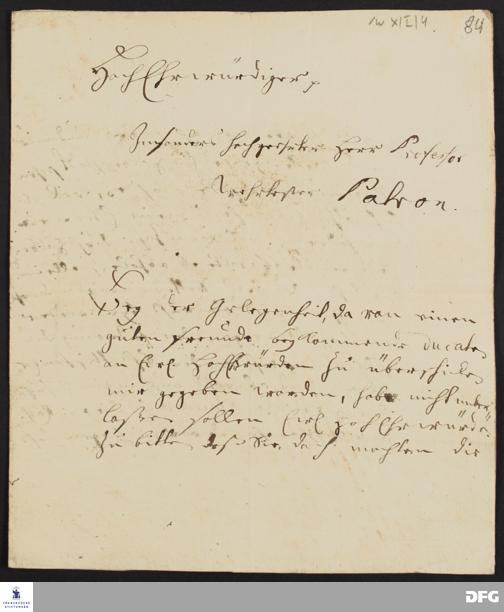 IV XI|I|4.
84
HochEhrwürdiger p
Insonders hochgeehrter Herr Professor
Wehrtester Patron.
Bey der Gelegenheit, da von einem
guten Freunde beykommende Ducaten
an Ewl HochEhrwürden zu überschicken
mir gegeben worden, habe nicht unter-
laßen sollen Ewl HochEhrwürd.
zu bitten, daß Sie doch mochten die
FRANCKESCHE
STIFTUNGEN
DFG